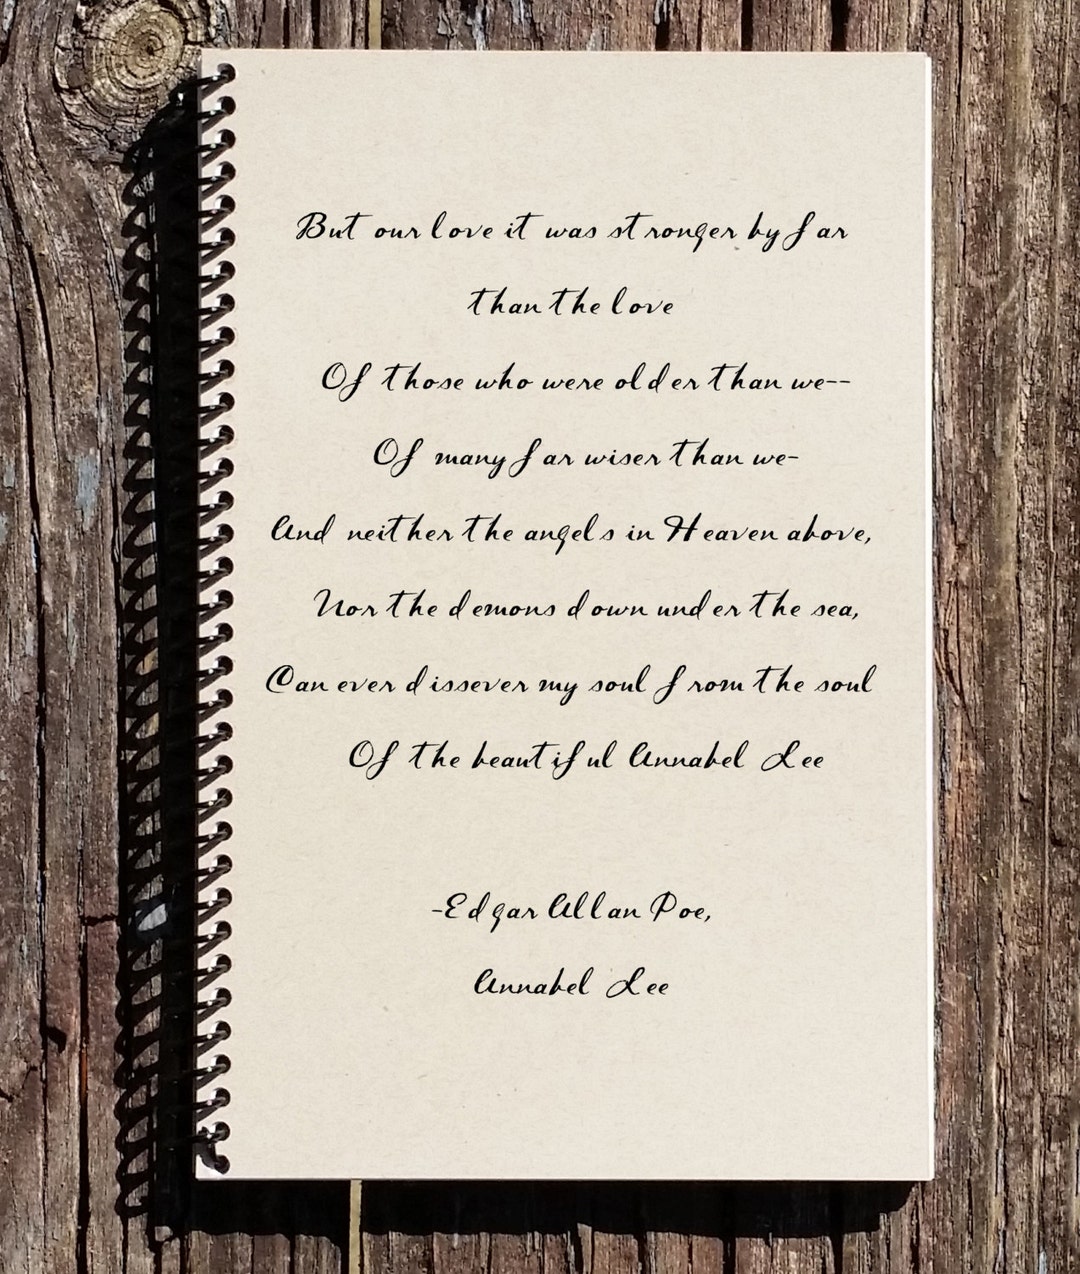 But our love it was stronger by far
than the love
Of those who were older than we--
Of many far wiser than we-
And neither the angels in Heaven above,
Nor the demons down under the sea,
Can ever dissever my soul from the soul
Of the beautiful Annabel Lee
-Edgar Allan Poe,
Annabel Lee